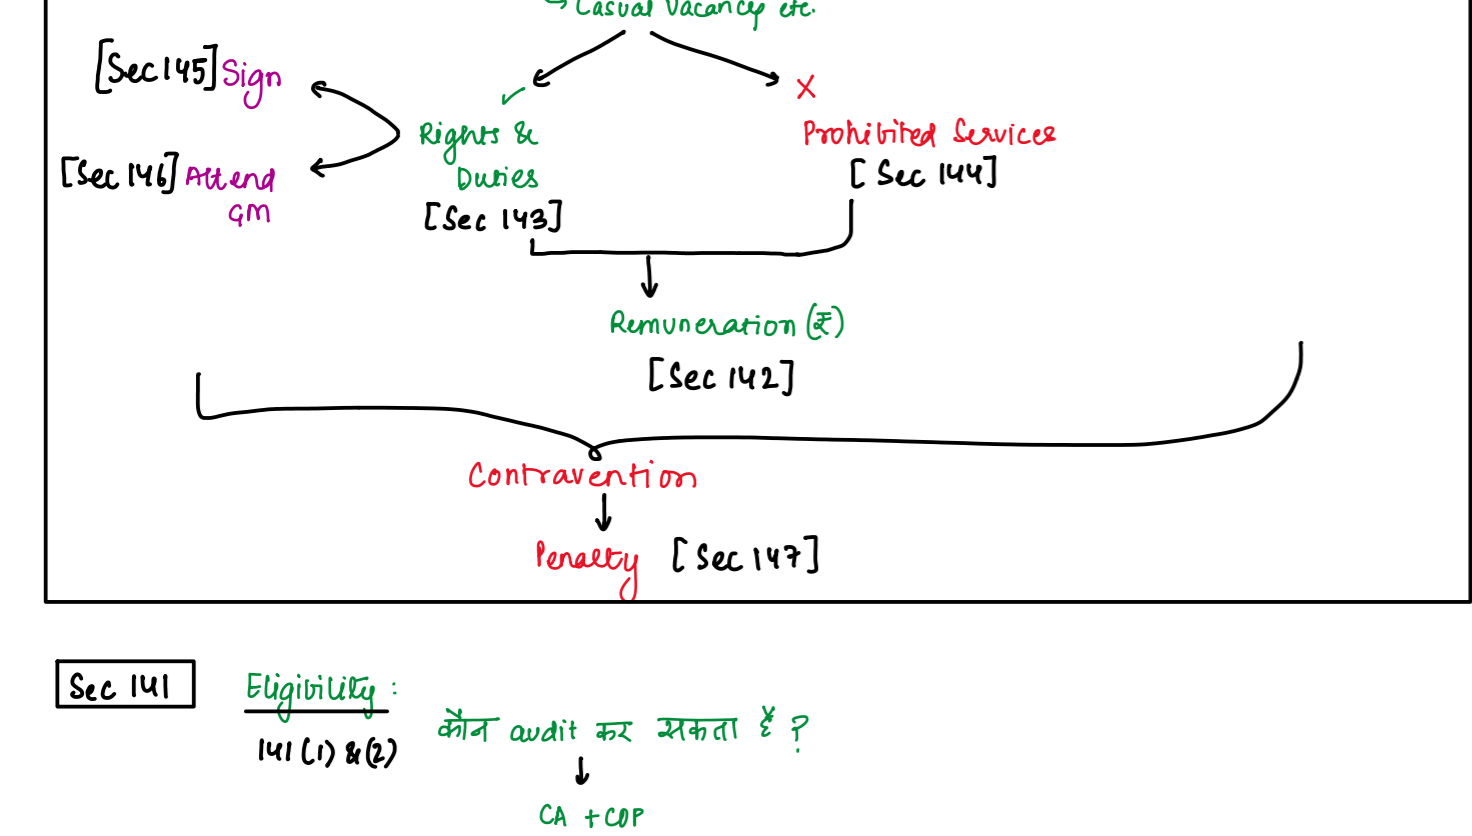 ↳ Casual Vacancy etc.
[Sec 145] Sign
✓
X
Rights &
Duties
[Sec 143]
Prohibited Services
[Sec 144]
[Sec 146] Attend
GM
Remuneration (₹)
[Sec 142]
Contravention
Penalty [Sec 147]
Sec 141 Eligibility :
141 (1) & (2)
कौन audit कर सकता है ?
CA + COP